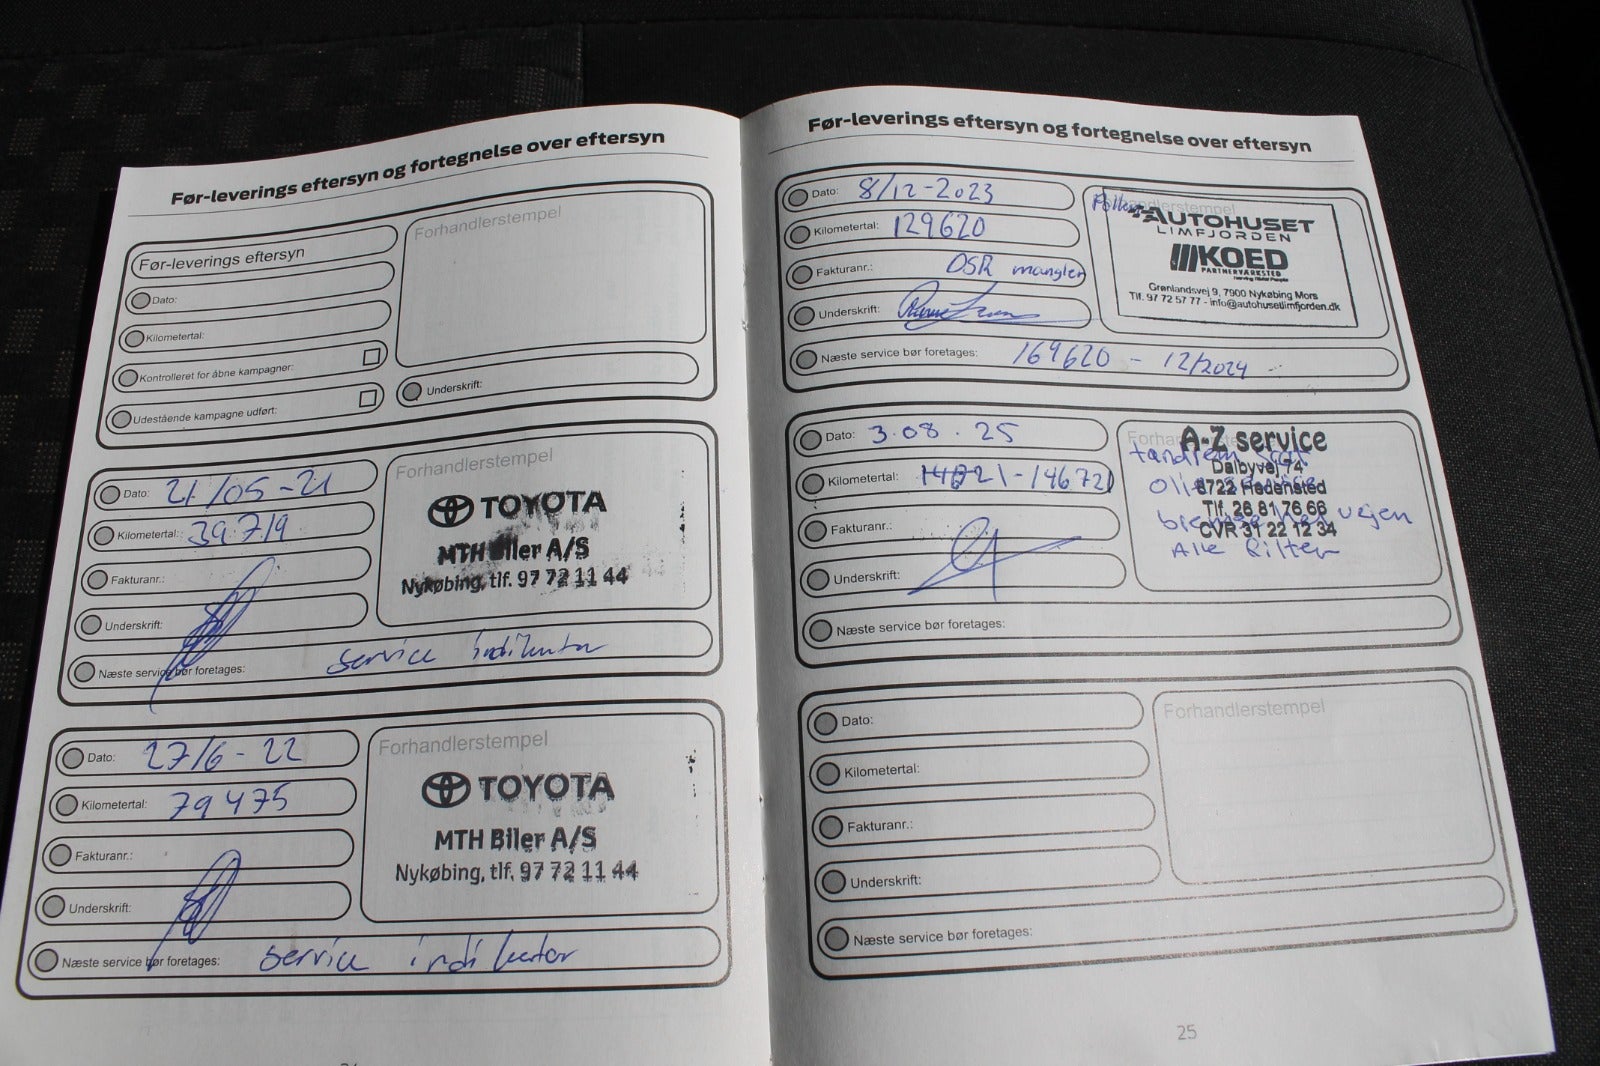 Før-leverings eftersyn og fortegnelse over eftersyn
Før-leverings eftersyn
Dato:
Kilometertal:
Kontrolleret for åbne kampagner:
Udestående kampagne udført:
Forhandlerstempel
Underskrift:
Dato: 21/05-21
Kilometertal: 39.719
Fakturanr.:
Underskrift:
Næste service bør foretages: service indikator
Forhandlerstempel
TOYOTA
MTH Biler A/S
Nykøbing, tlf. 97 72 11 44
Dato: 27/6-22
Kilometertal: 79475
Fakturanr.:
Underskrift:
Næste service bør foretages: service indikator
Forhandlerstempel
TOYOTA
MTH Biler A/S
Nykøbing, tlf. 97 72 11 44
Før-leverings eftersyn og fortegnelse over eftersyn
Dato: 8/12-2023
Kilometertal: 129620
Fakturanr.: DSR mangler
Underskrift:
Næste service bør foretages: 169620 - 12/2024
Forhandlerstempel
AUTOHUSET
LIMFJORDEN
KOED
PARTNERVÆRKSTED
Grønlandsvej 9, 7900 Nykøbing Mors
Tlf. 97 72 57 77 - info@autohusetlimfjorden.dk
Dato: 3.08.25
Kilometertal: 146721
Fakturanr.:
Underskrift:
Næste service bør foretages:
A-Z service
tandrem
Dalbyvej 74
8722 Hedensted
Tlf. 26 81 76 66
CVR 31 22 12 34
Alle filter
Dato:
Kilometertal:
Fakturanr.:
Underskrift:
Næste service bør foretages:
Forhandlerstempel
25